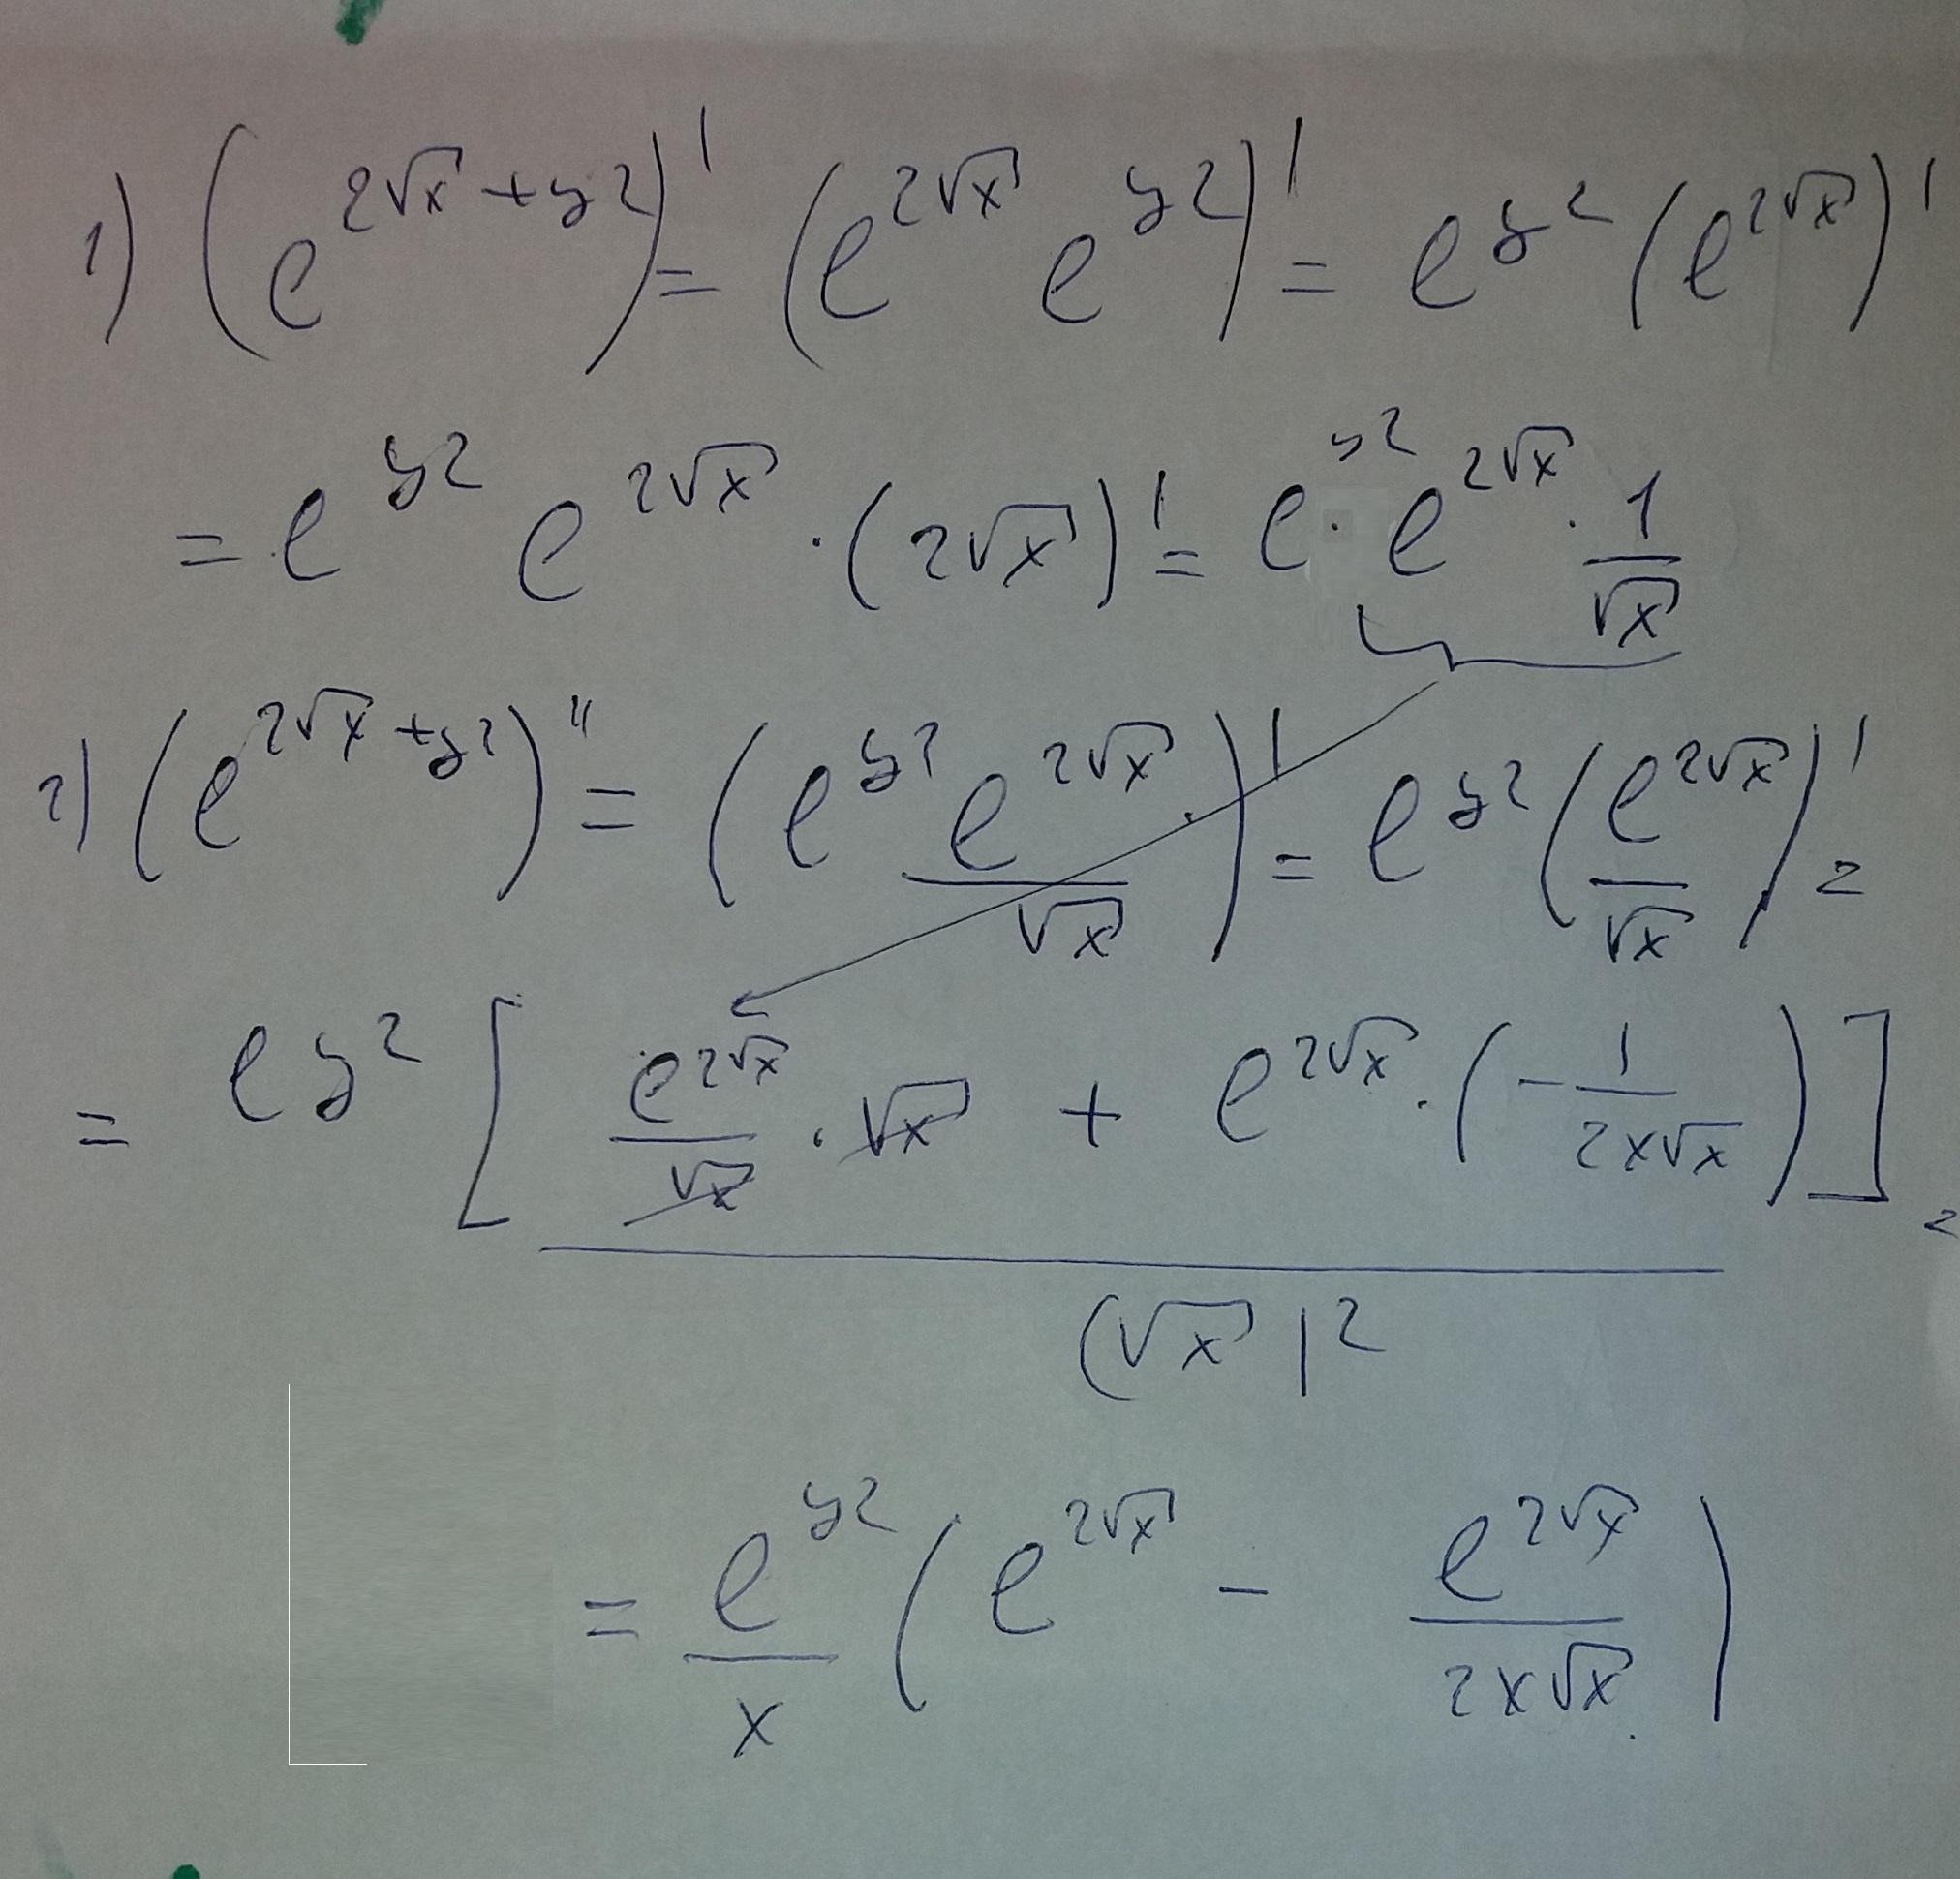 1) (e^{2√x + y2})' = (e^{2√x} e^{y2})' = e^{y2} (e^{2√x})'
= e^{y2} e^{2√x} · (2√x)' = e^{y2} · e^{2√x} · \frac{1}{√x}
2) (e^{2√x + y2})'' = (e^{y2} \frac{e^{2√x}}{√x})' = e^{y2} (\frac{e^{2√x}}{√x})' =
= e^{y2} [\frac{\frac{e^{2√x}}{√x} · √x + e^{2√x} · (-\frac{1}{2x√x})}{(√x)^2}] =
= \frac{e^{y2}}{x} (e^{2√x} - \frac{e^{2√x}}{2x√x})